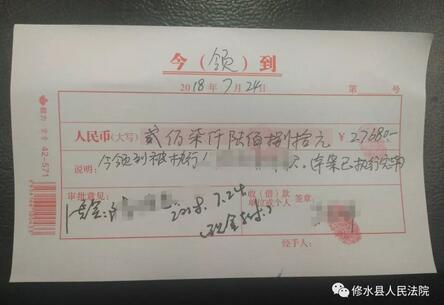 今（领）到
2018年7月24日 第 号
人民币（大写）贰万柒仟陆佰捌拾元 ￥27680.-
说明：今领到被执行人 本案已执行完毕
审批意见： 收（借）款单位或个人 签章：
2018.7.24
现金支付
经手人：
42-571
修水县人民法院